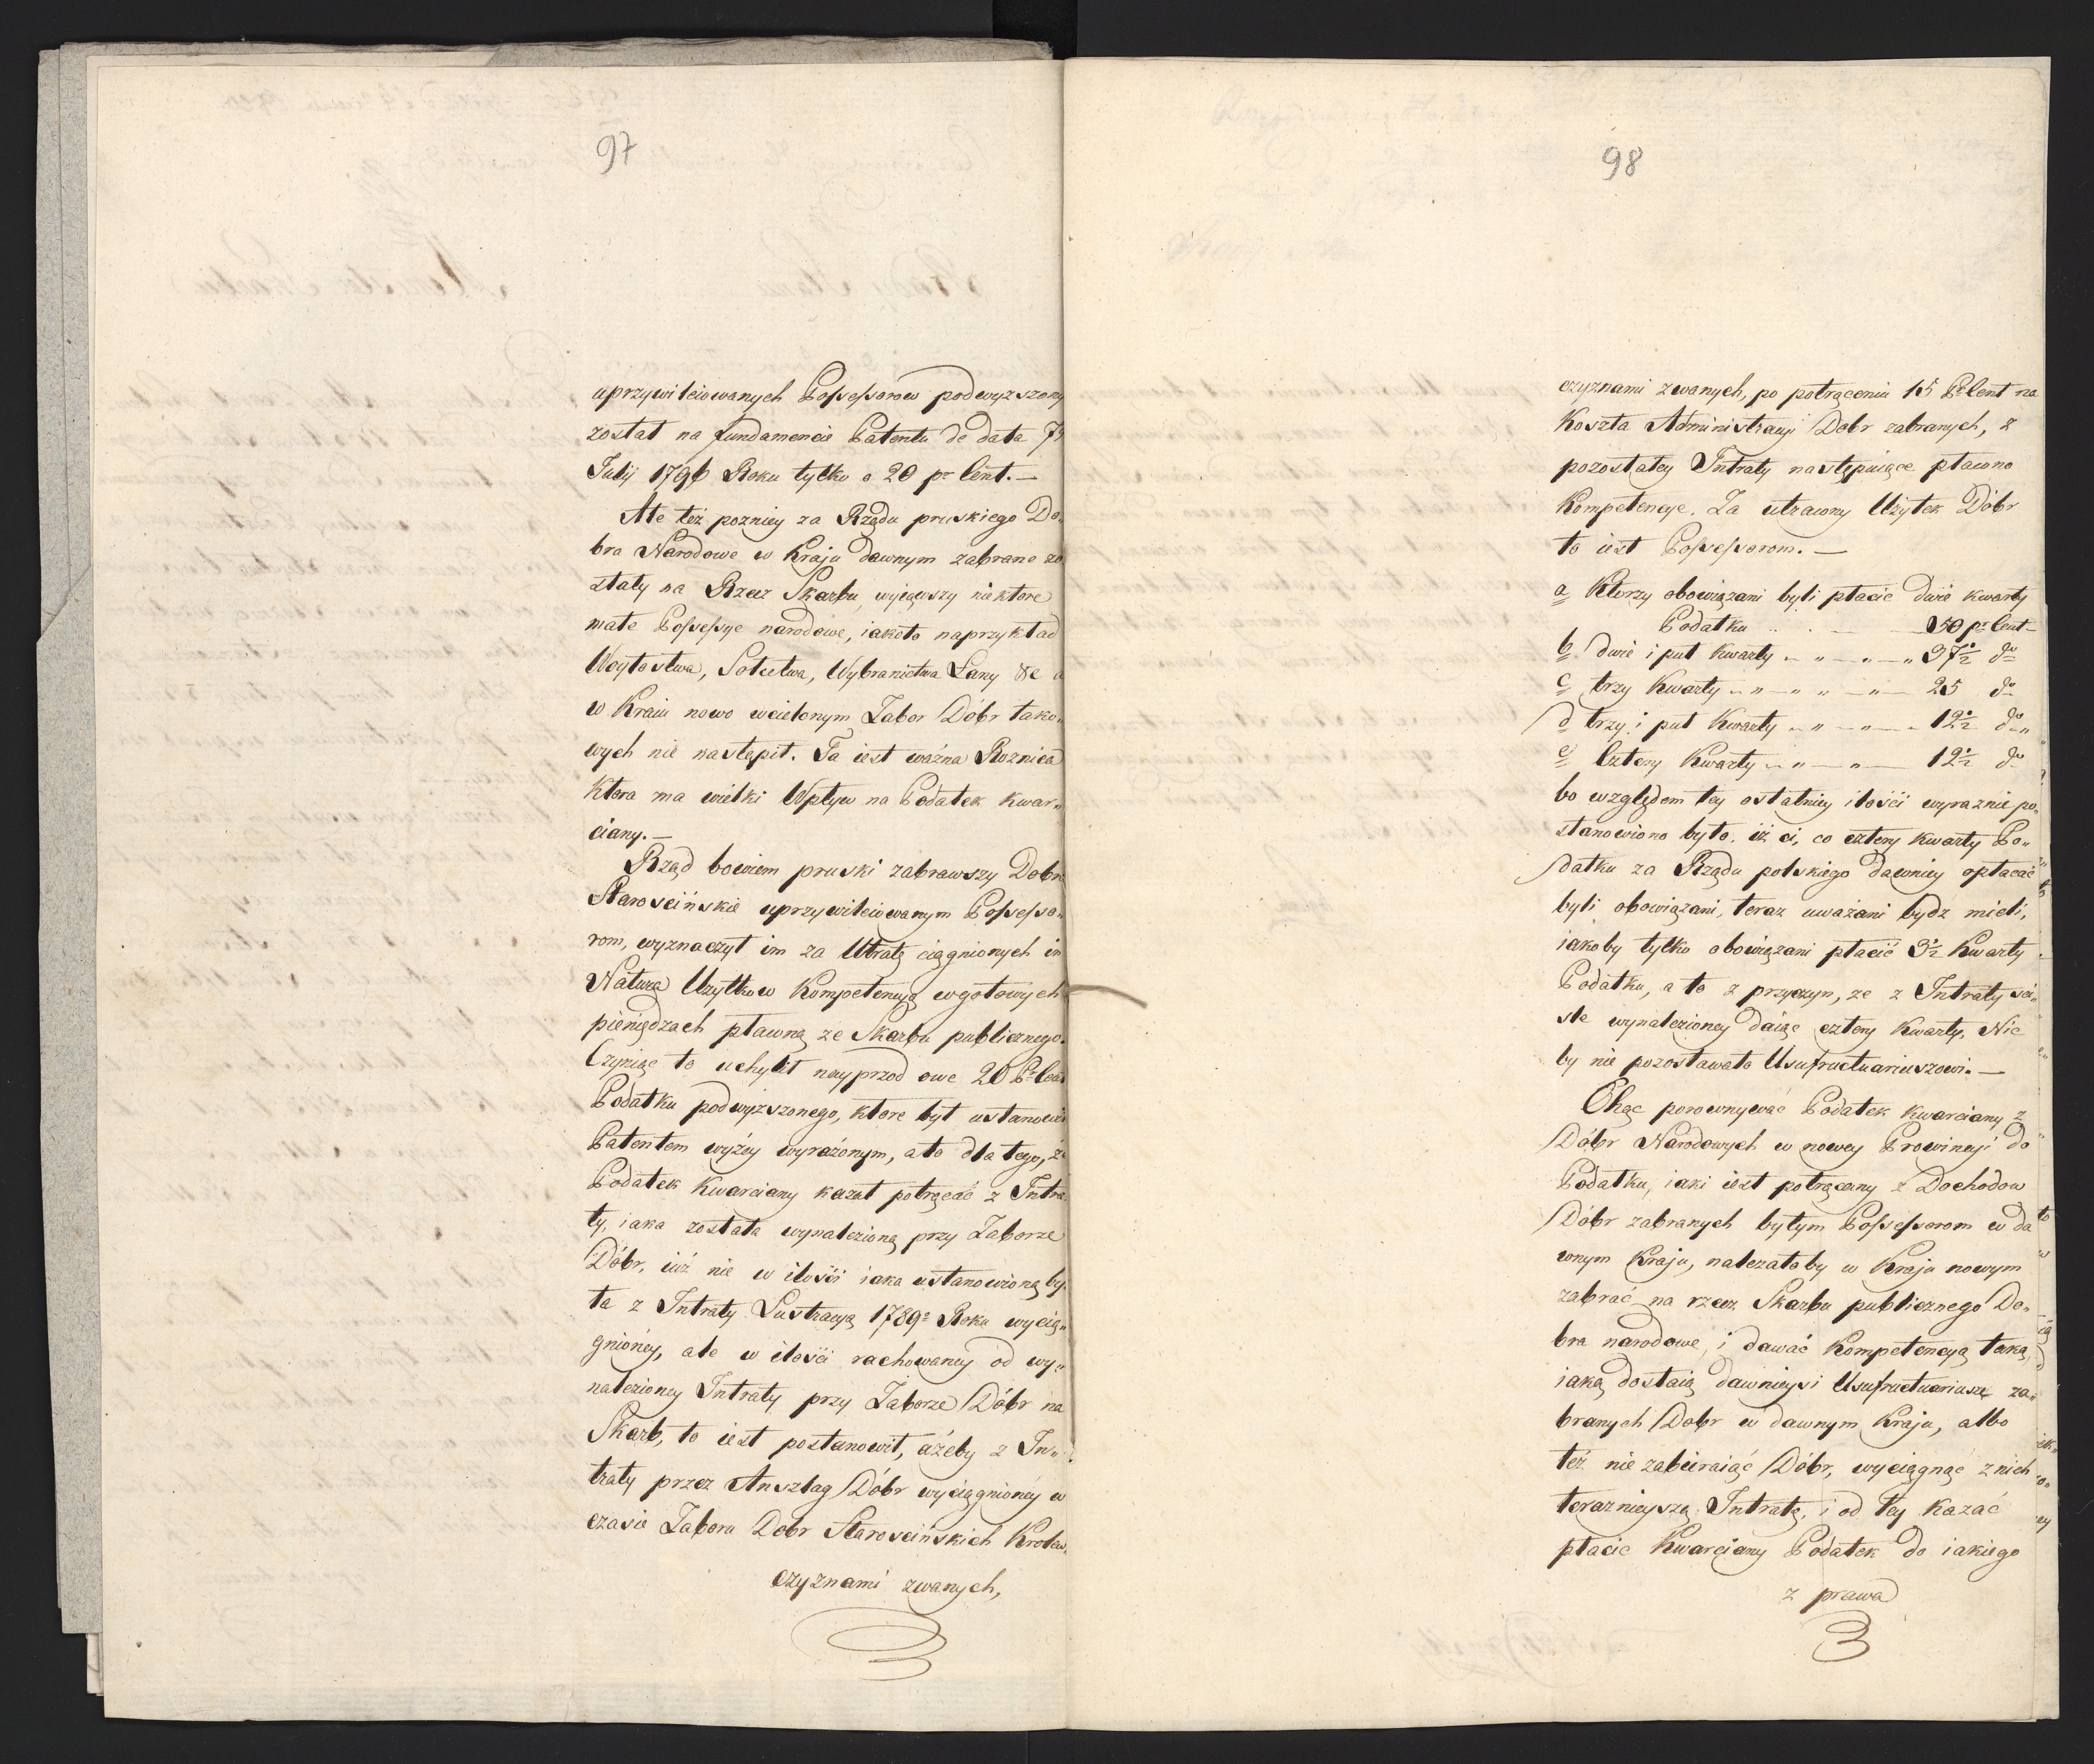 97
uprzywileiowanych Possessorow podwyzszony
został na fundamencie Patentu de data 7
Julij 1796 Roku tylko o 20 pr Cent. —
Ale też pozniey za Rządu pruskiego Do„
bra Narodowe w Kraju dawnym zabrane zo
stały na Rzecz Skarbu, wyiąwszy niektore
małe Possessye narodowe, iakoto naprzykład
Woytostwa, Sołectwa, Wybranictwa Łany &c a
w Kraiu nowo wcielonym Zabor Dóbr tako„
wych nie nastąpił. Ta iest ważna Roznica
ktora ma wielki Wpływ na Podatek kwar„
ciany. —
Rząd bowiem pruski zabrawszy Dobra
Starościńskie uprzywileiowanym Possesso„
rom, wyznaczył im za Utratę ciągnionych in
Natura Użytkow Kompetencyą wgotowych
pieniędzach pławną ze Skarbu publicznego.
Czyniąc to uchylił nayprzod owe 20 Pr Cent
Podatku podwyższonego, ktore był ustanowił
Patentem wyżey wyrażonym, a to dla tego, że
Podatek Kwarciany kazał potrącać z Intra
ty, iaka została wynalezioną przy Zaborze
Dóbr, iuż nie w ilości iaka ustanowioną by„
ła z Intraty Lustracyą 1789o Roku wycią„
gnióney, ale w ilości rachowaney od wy„
nalezioney Intraty przy Zaborze Dóbr na
Skarb, to iest postanowił, ażeby z In„
traty przez Anszlag Dóbr wyciągnióney w
czasie Zaboru Dobr Starościńskich Krolew„
czyznami zwanych,
98
czyznami zwanych, po potrąceniu 15 Pr Cent na
Koszta Administracyi Dobr zabranych, z
pozostałey Intraty następuiące płacono
Kompetencye. Za utracony Użytek Dóbr
to iest Possessorom. —
a Ktorzy obowiązani byli płacić dwie kwarty
Podatku — 50 pr Cent —
b dwie i puł Kwarty „ „ — „ — „ 37½ do
c trzy Kwarty „ „ — „ — „ — 25 do
d trzy i puł Kwarty „ „ — „ — 12½ do „
e Cztery Kwarty „ „ — „ — 12½ do
bo względem tey ostatniey ilości wyraznie po„
stanowiono było, iż ci, co cztery kwarty Po„
datku za Rządu polskiego dawniey opłacać
byli obowiązani, teraz uważani bydz mieli,
iakoby tylko obowiązani płacić 3½ Kwarty
Podatku, a to z przyczyn, ze z Intraty ści„
sle wynalezioney daiąc cztery Kwarty, Nic
by nie pozostawało Usufructuariuszowi. —
Chąc porownywać Podatek Kwarciany z
Dóbr Narodowych w nowey Prowincyi do
Podatku, iaki iest potrącany z Dochodow
Dóbr zabranych byłym Possessorom w da
wnym Kraju, należałoby w Kraju nowym
zabrać na rzecz Skarbu publicznego Do„
bra narodowe, i dawać Kompetencyą taką,
iaką dostaią dawnieysi Usufructuariusze za„
branych Dobr w dawnym Kraju, albo
też nie zabieraiąc Dóbr, wyciągnąć z nich
teraznieyszą Intratę, i od tey kazać
płacic Kwarciany Podatek do iakiego
z prawa